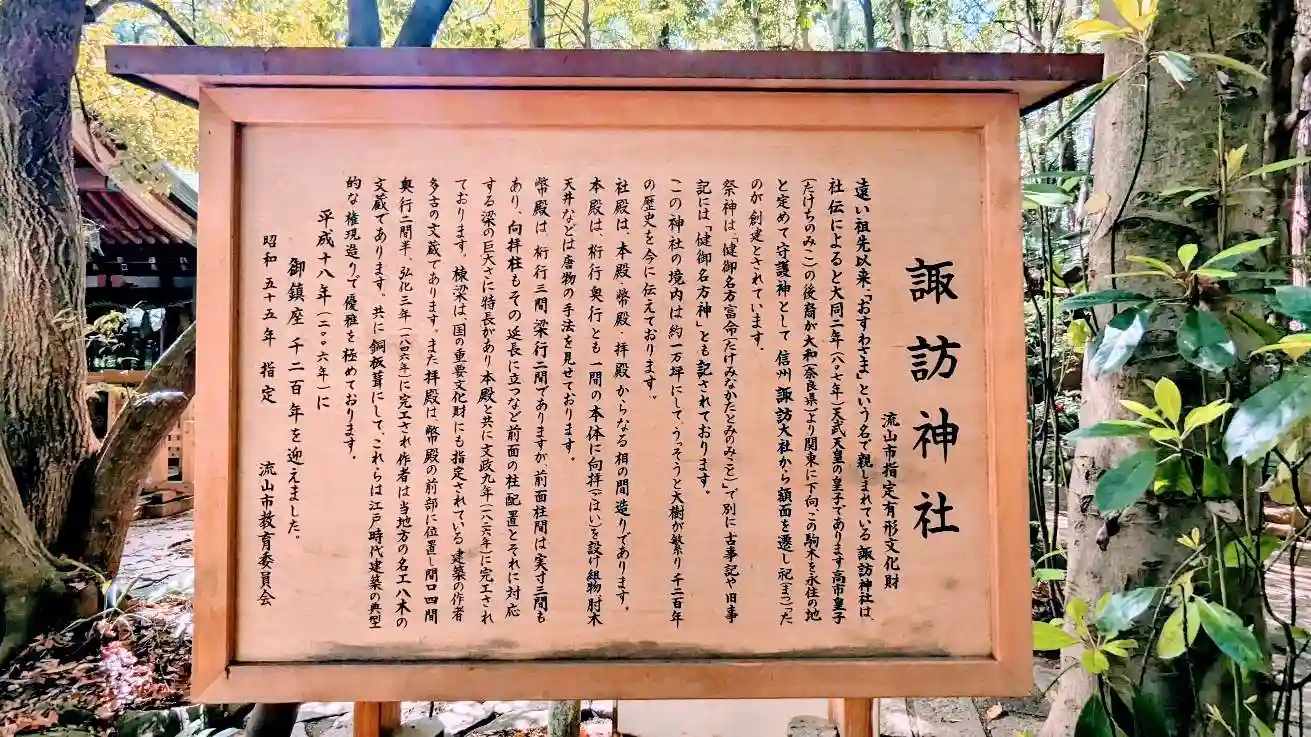 諏訪神社
流山市指定有形文化財
遠い祖先以来、「おすわさま」という名で親しまれている諏訪神社は、
社伝によると大同二年(八〇七年)天武天皇の皇子であります高市皇子
(たけちのみこ)の後裔が大和(奈良県)より関東に下向、この駒木を永住の地
と定めて守護神として信州諏訪大社から額面を遷し祀(まつ)った
のが創建とされています。
祭神は「健御名方富命(たけみなかたとみのみこと)」で別に古事記や旧事
記には「健御名方神」とも記されております。
この神社の境内は約一万坪にして、うっそうと大樹が繁り千二百年
の歴史を今に伝えております。
社殿は、本殿、幣殿、拝殿からなる相の間造りであります。
本殿は、桁行、奥行とも一間の本体に向拝(ごはい)を設け組物肘木
天井などは唐物の手法を見せております。
幣殿は、桁行三間、梁行二間でありますが、前面柱間は実寸三間も
あり、向拝柱もその延長に立つなど前面の柱配置とそれに対応
する梁の巨大さに特長があり本殿と共に文政九年(一八二六年)に完工され
ております。棟梁は、国の重要文化財にも指定されている建築の作者
多古の文蔵であります。また拝殿は、幣殿の前部に位置し間口四間
奥行二間半、弘化三年(一八四六年)に完工され作者は当地方の名工八木の
文蔵であります。共に銅板葺にして、これらは江戸時代建築の典型
的な権現造りで優雅を極めております。
平成十八年(二〇〇六年)に
御鎮座千二百年を迎えました。
昭和五十五年 指定 流山市教育委員会